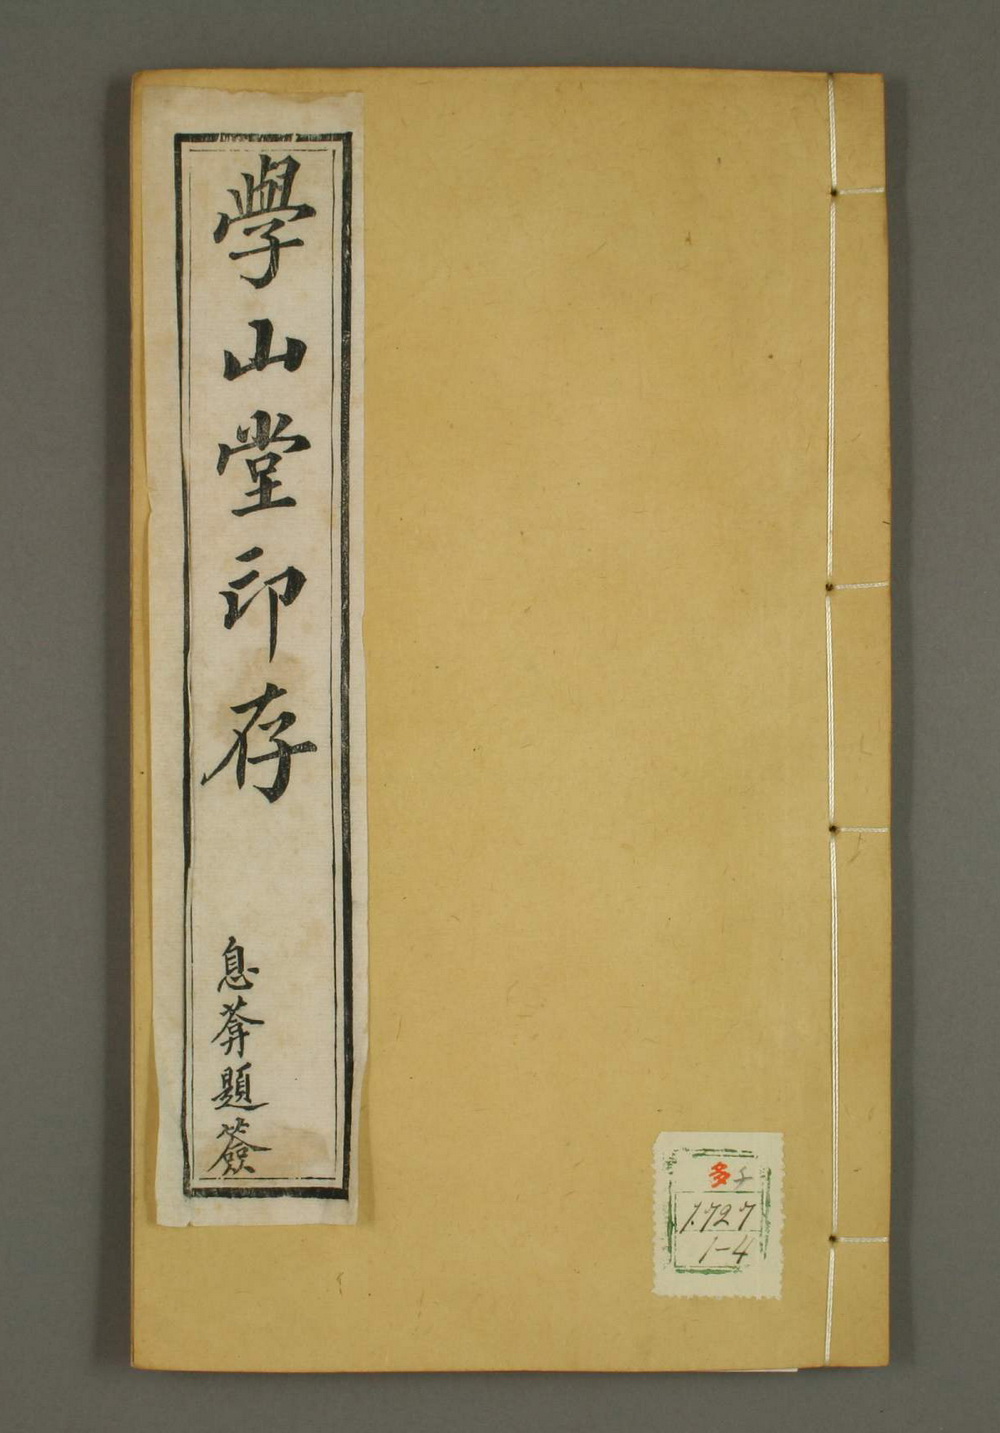 學山堂印存
息葊題簽
多 チ
1.727
1-4